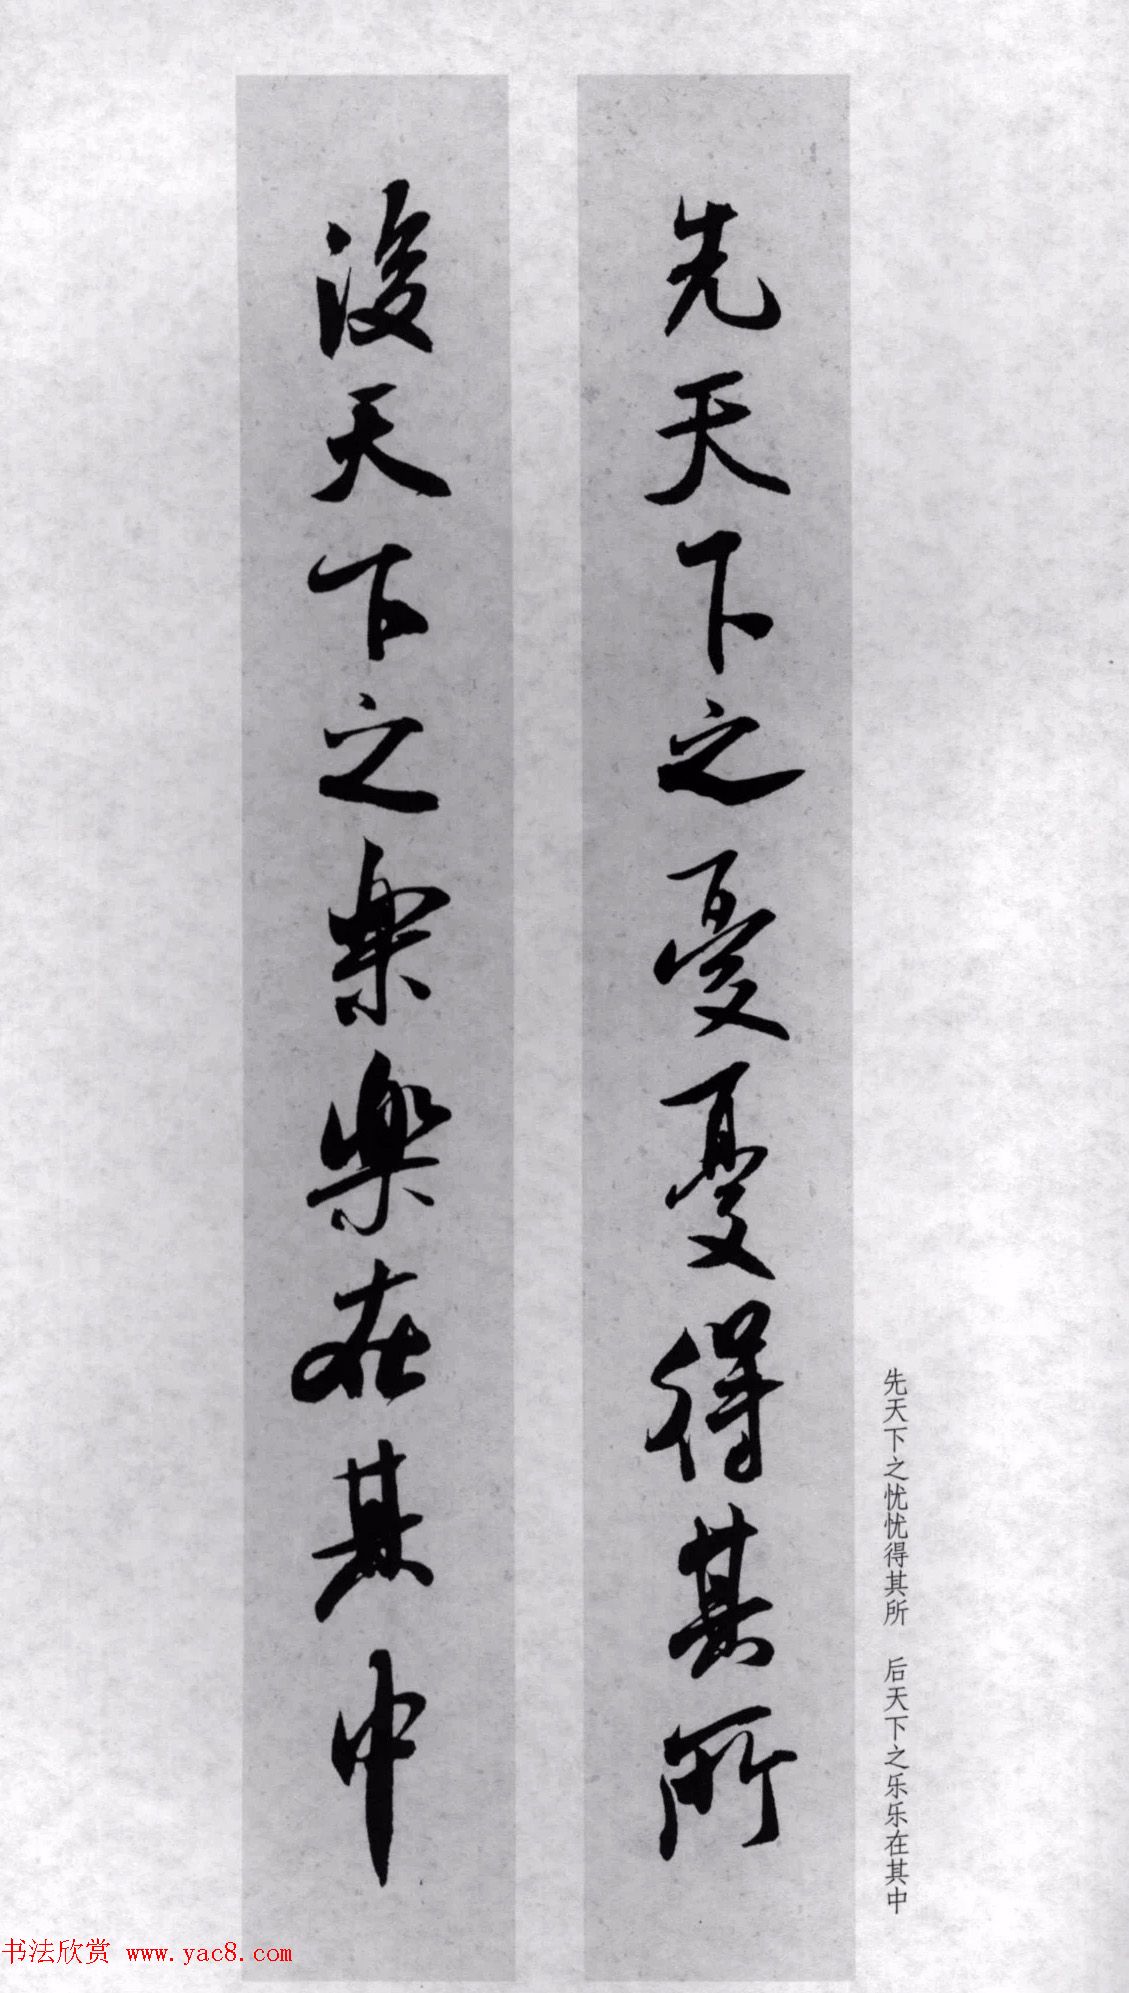 先天下之憂憂得其所
後天下之樂樂在其中
先天下之忧忧得其所　后天下之乐乐在其中
书法欣赏 www.yac8.com